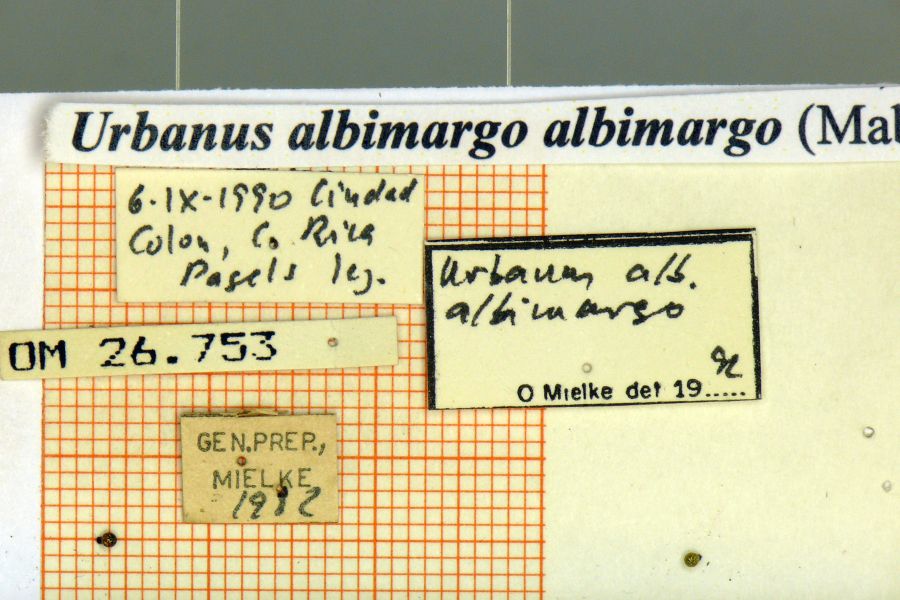 Urbanus albimargo albimargo (Mab
6·IX-1990 Ciudad
Colon, C. Rica
Pagels leg.
Urbanus alb.
albimargo
O Mielke det 19.....
OM 26.753
GEN.PREP.,
MIELKE
1992